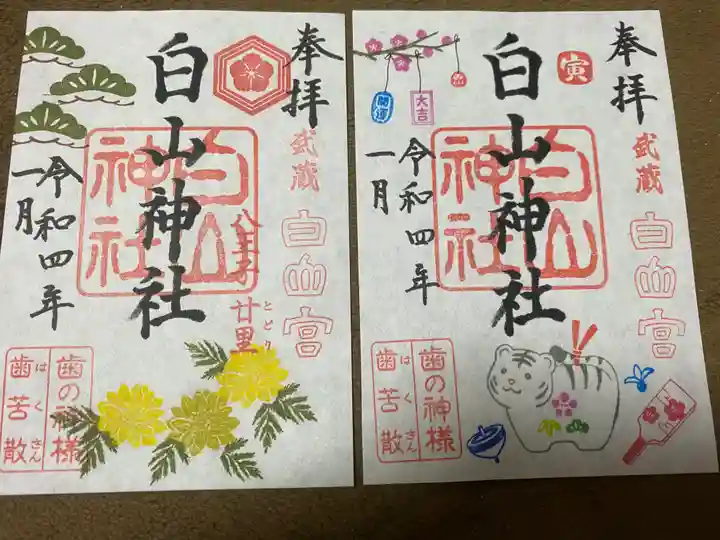 奉拝
武蔵
白山宮
白山神社
白山神社
八王子 廿里
とどり
令和四年
一月
歯の神様
歯苦散
はくさん
奉拝
寅
武蔵
白山宮
白山神社
白山神社
大吉
開運
令和四年
一月
歯の神様
歯苦散
はくさん